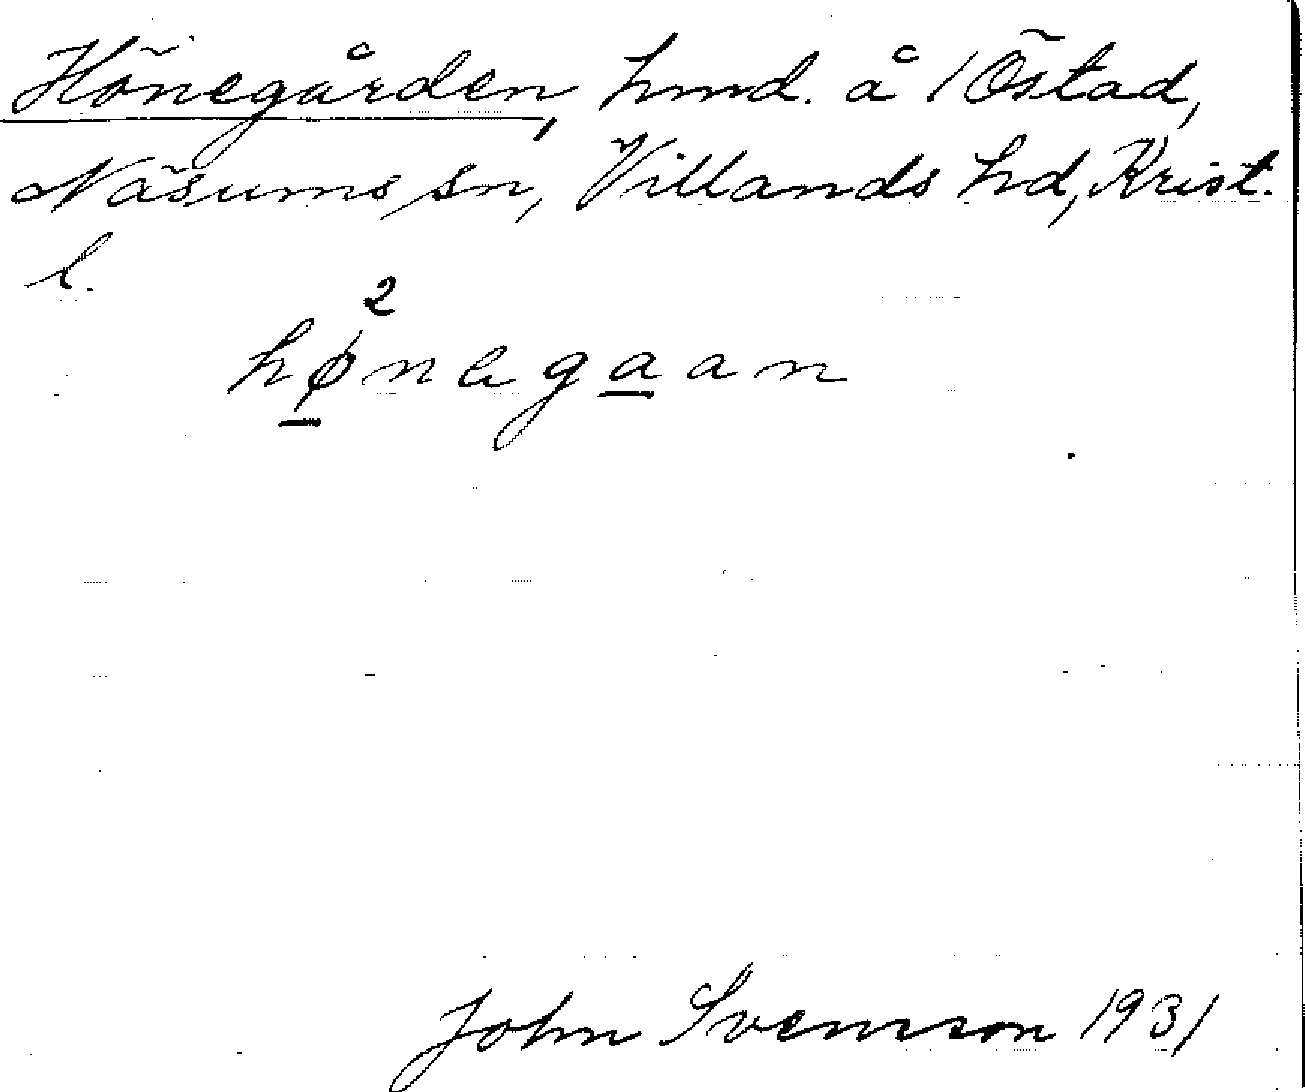 Hönegården, hmd. å 1 Östad,
Näsums sn, Villands hd, Krist.
l.
2
hønegaan
John Svensson 1931